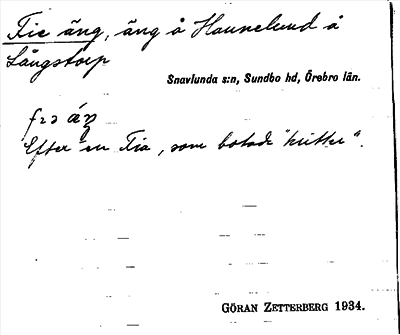 Fie äng, äng å Hannelund å
Långstorp
Snavlunda s:n, Sundbo hd, Örebro län.
Efter en Fia, som botade "kritter".
GÖRAN ZETTERBERG 1934.